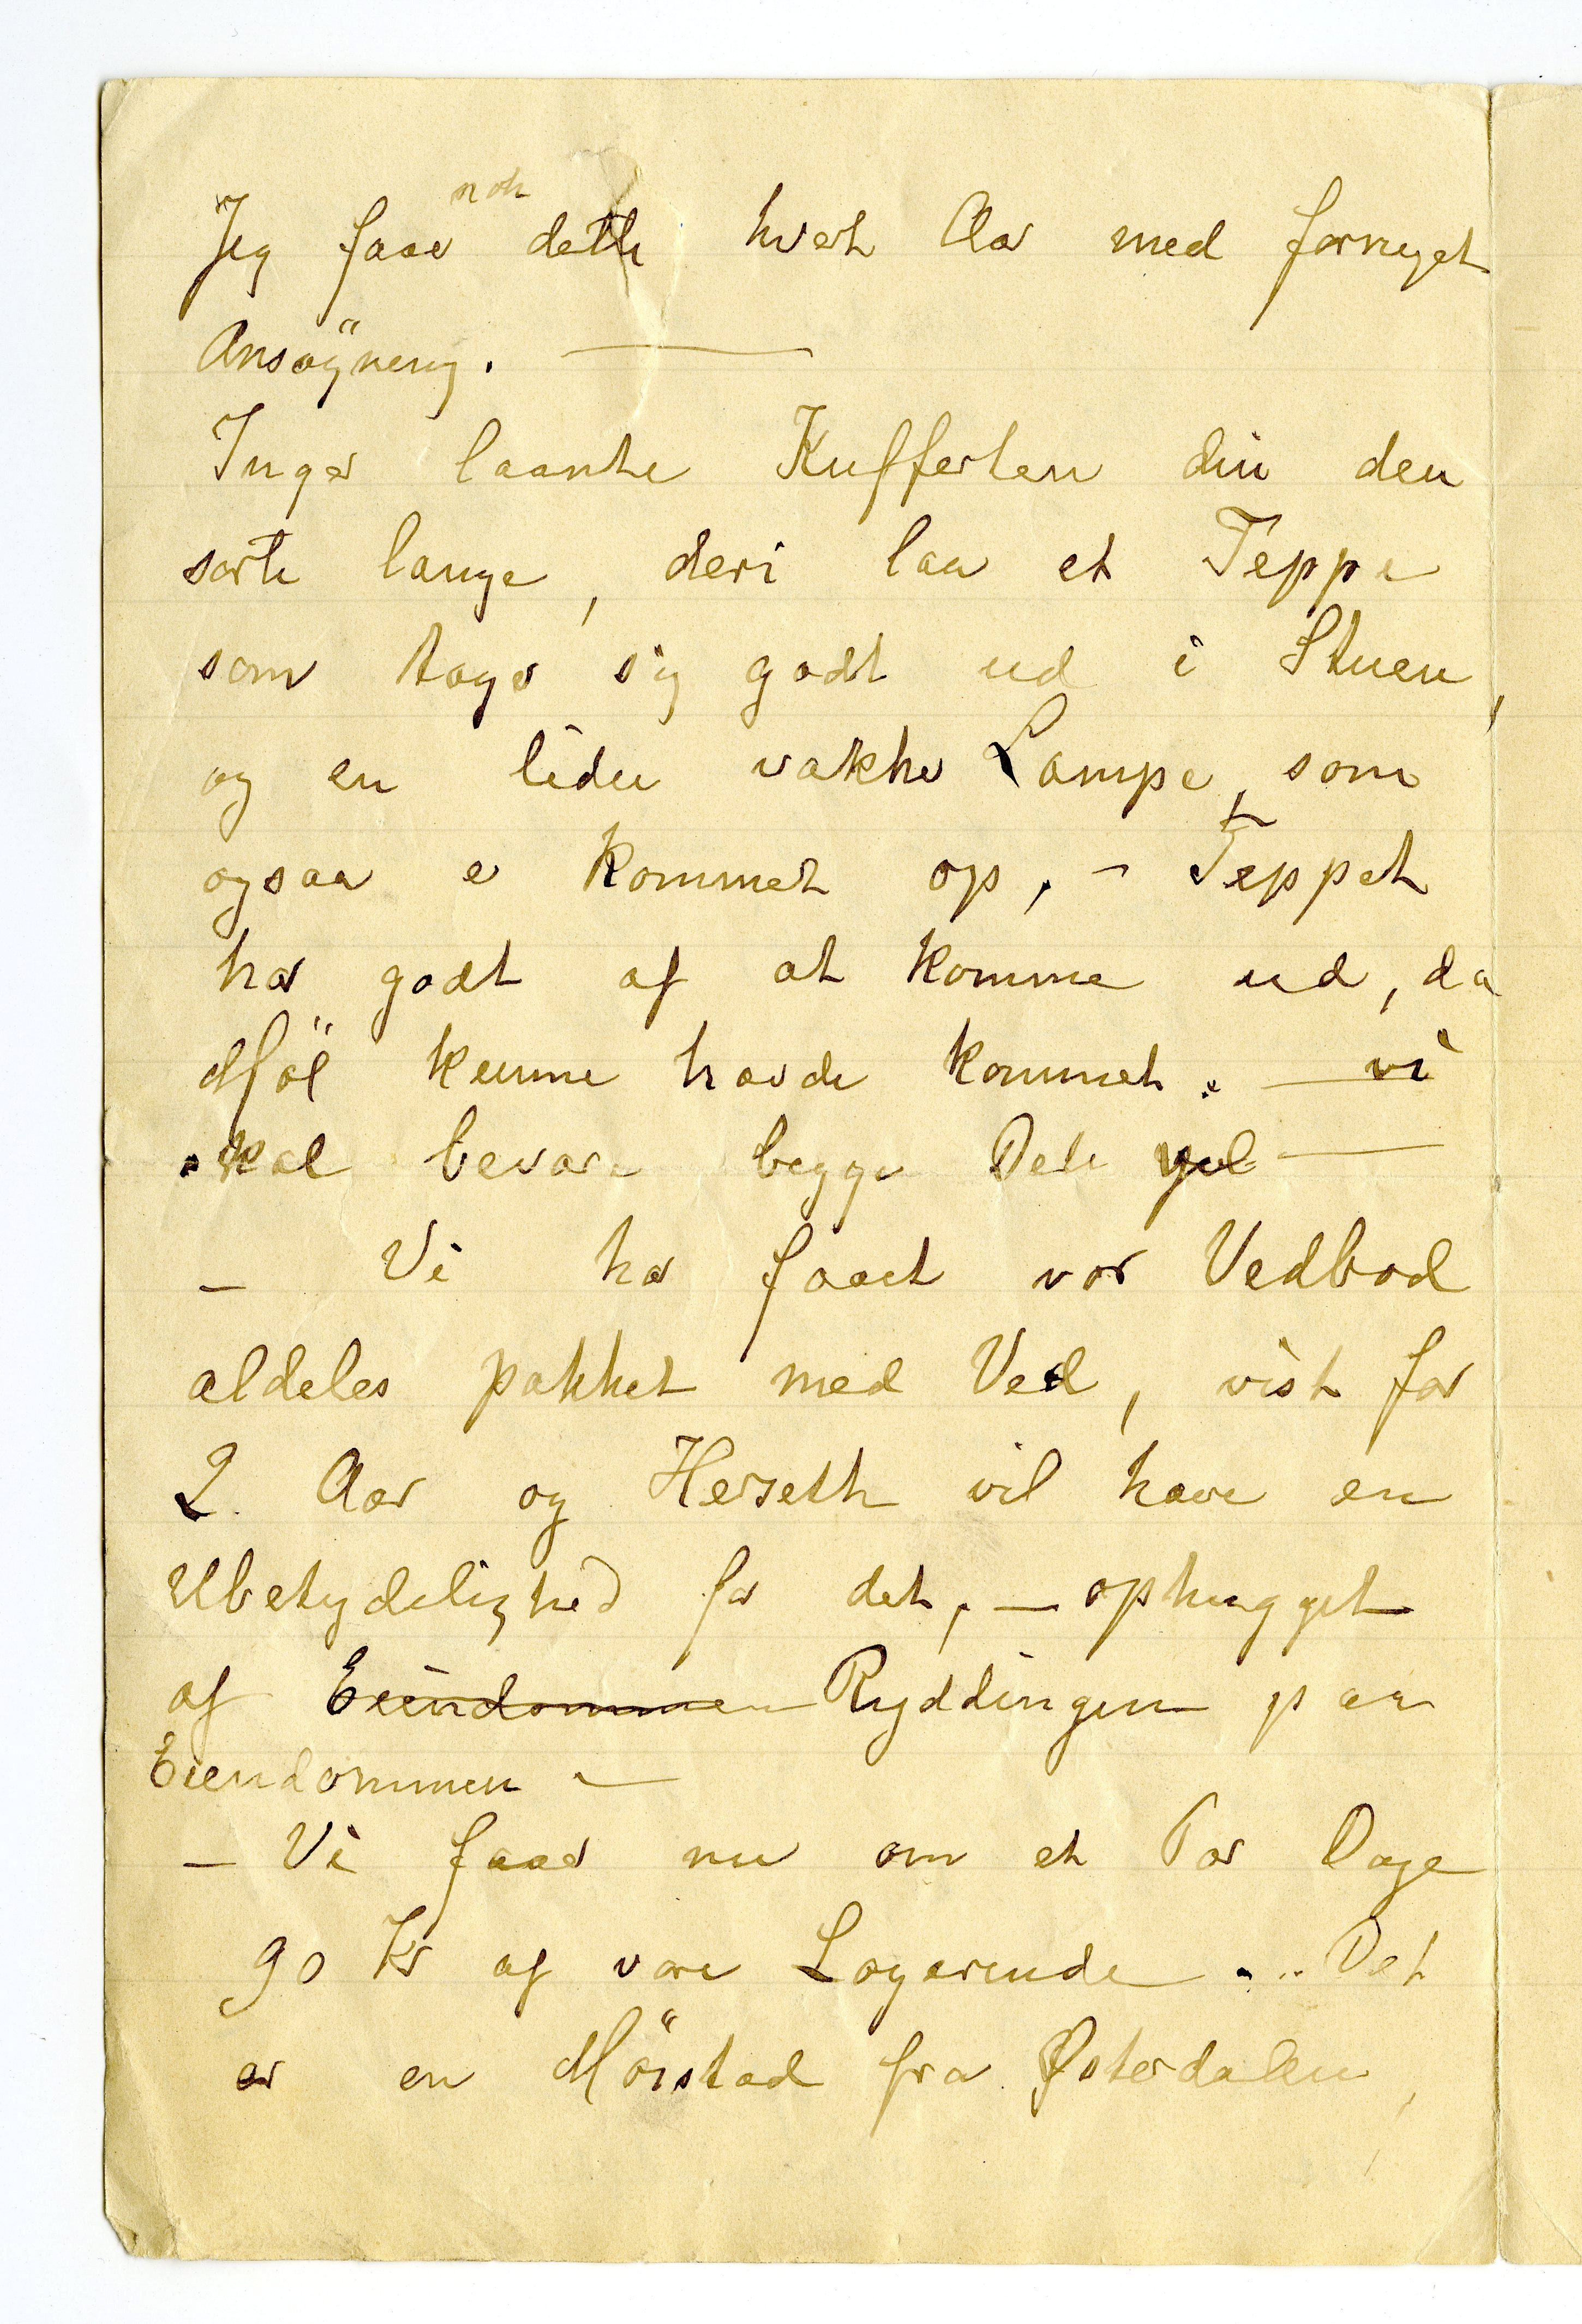 Jeg faar nok dette hvert Aar med fornyet
Ansøgning. —
Inger laante Kufferten din den
sorte lange, deri laa et Teppe
som tager sig godt ud i Stuen,
og en liden vakker Lampe, som
ogsaa er kommet op, – Teppet
har godt af at komme ud, da
Møl kunne havde kommet. — vi
skal bevare begge Dele vel —
– Vi har faaet vor Vedbod
aldeles pakket med Ved, vist for
2 Aar og Herseth vil have en
Ubetydelighed for det, — ophugget
af Eiendommen Ryddingen paa
Eiendommen —
– Vi faar nu om et Par Dage
90 Kr af vore Logerende... Det
er en Möistad fra Østerdalen,